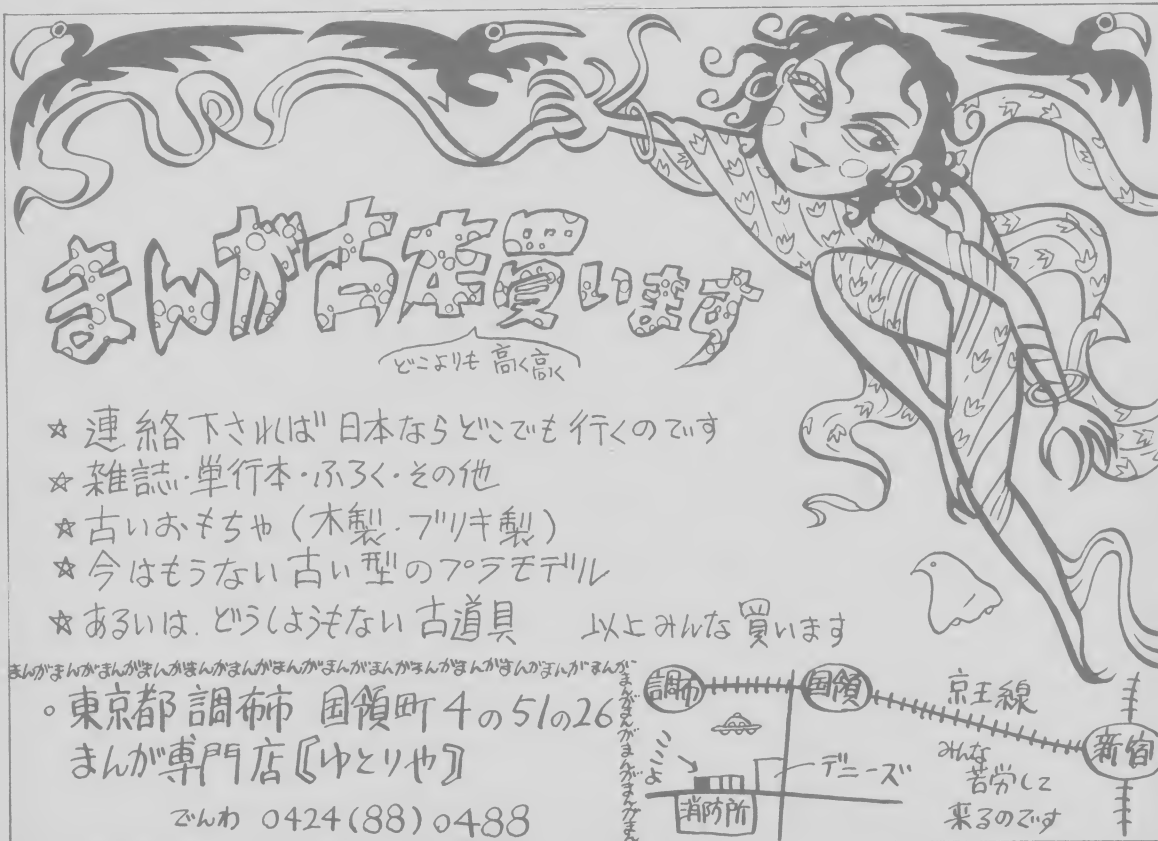 まんが古本買います
どこよりも 高く高く
☆ 連絡下されば 日本ならどこでも 行くのです
☆ 雑誌・単行本・ふろく・その他
☆ 古いおもちゃ (木製・ブリキ製)
☆ 今はもうない 古い型のプラモデル
☆ あるいは、どうしようもない 古道具 以上みんな買います
まんがまんがまんがまんがまんがまんがまんがまんがまんがまんがまんがまんがまんがまんが
。東京都 調布市 国領町4の51の26
まんが専門店〘ゆとりや〙
でんわ 0424(88)0488
まんがまんがまんがまんがまんがまん
調布
国領
京王線
新宿
ここよ
デニーズ
消防所
みんな
苦労して
来るのです